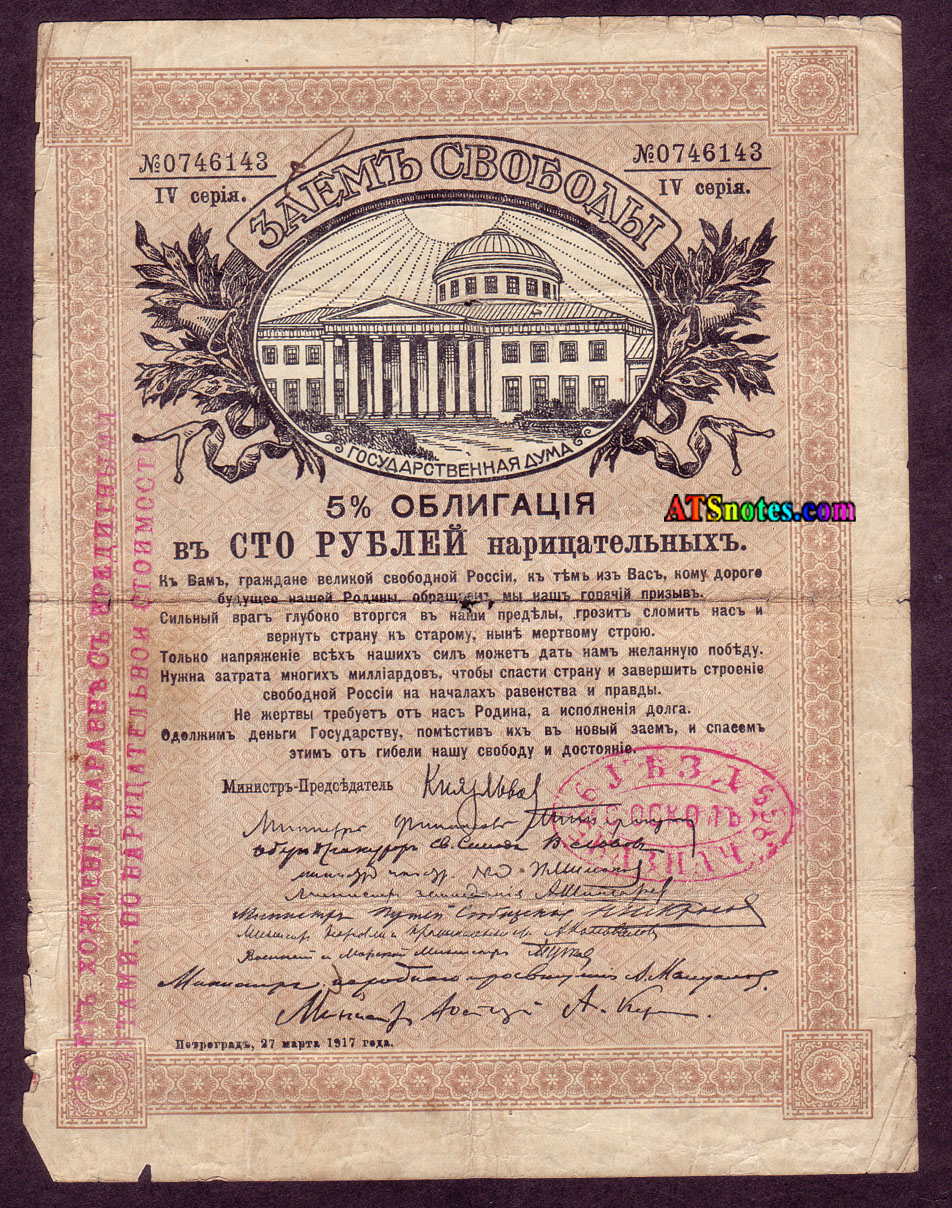 №0746143
IV серія.
№0746143
IV серія.
ЗАЕМЪ СВОБОДЫ
ГОСУДАРСТВЕННАЯ ДУМА
5% ОБЛИГАЦІЯ
ATSnotes.com
въ СТО РУБЛЕЙ нарицательныхъ.
Къ Вамъ, граждане великой свободной Россіи, къ тѣмъ изъ Васъ, кому дорого
будущее нашей Родины, обращаемъ мы нашъ горячій призывъ.
Сильный врагъ глубоко вторгся въ наши предѣлы, грозитъ сломить насъ и
вернуть страну къ старому, нынѣ мертвому строю.
Только напряженіе всѣхъ нашихъ силъ можетъ дать намъ желанную побѣду.
Нужна затрата многихъ милліардовъ, чтобы спасти страну и завершить строеніе
свободной Россіи на началахъ равенства и правды.
Не жертвы требуетъ отъ насъ Родина, а исполненія долга.
Одолжимъ деньги Государству, помѣстивъ ихъ въ новый заемъ, и спасемъ
этимъ отъ гибели нашу свободу и достояніе.
Министръ-Предсѣдатель Князь Львов
Министръ Финансовъ
Оберъ Прокуроръ Св. Синода В. Львов
Министръ земледѣлія А. Шингарев
Министръ Путей Сообщенія Н. Некрасов
Министръ Торговли и Промышленности А. Коновалов
Военный и Морской Министръ
Министръ народного просвѣщенія А. Мануйлов
Министръ Юстиціи А. Кер
Петроградъ, 27 марта 1917 года.
ХОЖДЕНІЕ НАРАВНѢ СЪ КРЕДИТНЫМИ
ПО НАРИЦАТЕЛЬНОЙ СТОИМОСТИ
ОСКОЛЬ